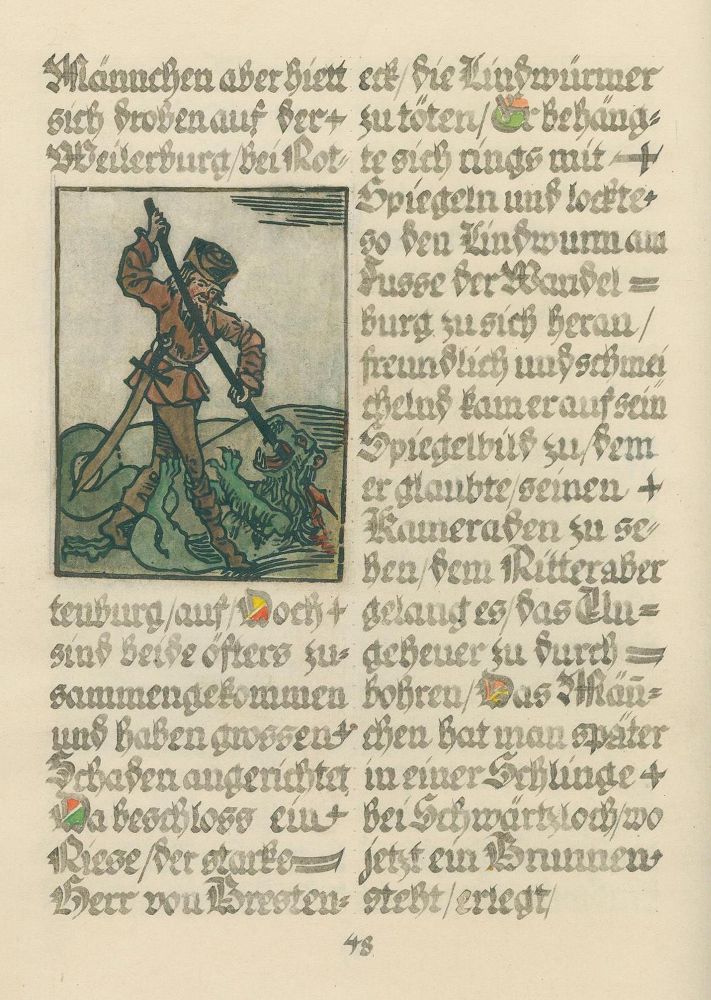 Männchen aber hielt
sich droben auf der+
Weilerburg/bei Rot-
tenburg/auf/Doch+
sind beide öfters zu-
sammengekommen
und haben grossen+
Schaden angerichtet
Da beschloss ein+
Riese/der starke=
Herr von Bresten-
eck/die Lindwürmer
zu töten/Er behäng-
te sich rings mit +
Spiegeln und lockte+
so den Lindwurm am
Fusse der Wandel=
burg zu sich heran/
freundlich und schmei
chelnd kam er auf sein
Spiegelbild zu/dem
er glaubte/seinen +
Kameraden zu se-
hen/dem Ritter aber
gelang es/das Un=
geheuer zu durch=
bohren/Das Män̄=
chen hat man später
in einer Schlinge +
bei Schwärtzloch/wo
jetzt ein Brunnen+
steht/erlegt/
48